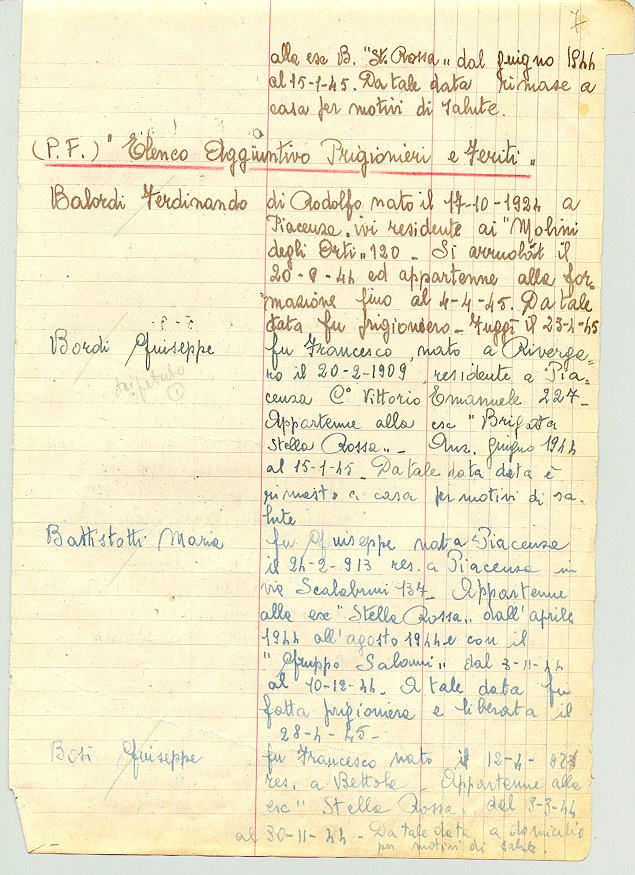 7
alla ex B. "St. Rossa" dal giugno 1944
al 15-1-45. Da tale data rimase a
casa per motivi di salute.
(P.F.) "Elenco Aggiuntivo Prigionieri e Feriti"
Balordi Ferdinando di Rodolfo nato il 17-10-1924 a
Piacenza. ivi residente ai "Molini
degli Orti" 120 - Si arruolò il
20-8-44 ed appartenne alla for-
mazione fino al 4-4-45. Da tale
data fu prigioniero - Fuggì il 23-4-45
Bordi Giuseppe fu Francesco, nato a Riverga-
ro il 20-2-1909, residente a Pia-
ripetuto
1
cenza C° Vittorio Emanuele 227-
Appartenne alla ex "Brigata
Stella Rossa" - giugno 1944
al 15-1-45. Da tale data data è
rimasto a casa per motivi di sa-
lute
Battistotti Maria fu Giuseppe nata Piacenza
il 24-2-913 res. a Piacenza in
via Scalabrini 134. Appartenne
alla ex "Stella Rossa" dall'aprile
1944 all'agosto 1944 e con il
"Gruppo Salami" dal 3-11-44
al 10-12-44. A tale data fu
fatta prigioniera e liberata il
28-4-45-
Boti Giuseppe fu Francesco nato il 12-4-
res. a Bettola. Appartenne alla
ex "Stella Rossa" dal 3-3-44
al 30-11-44 - Da tale data a domicilio
per motivi di salute.